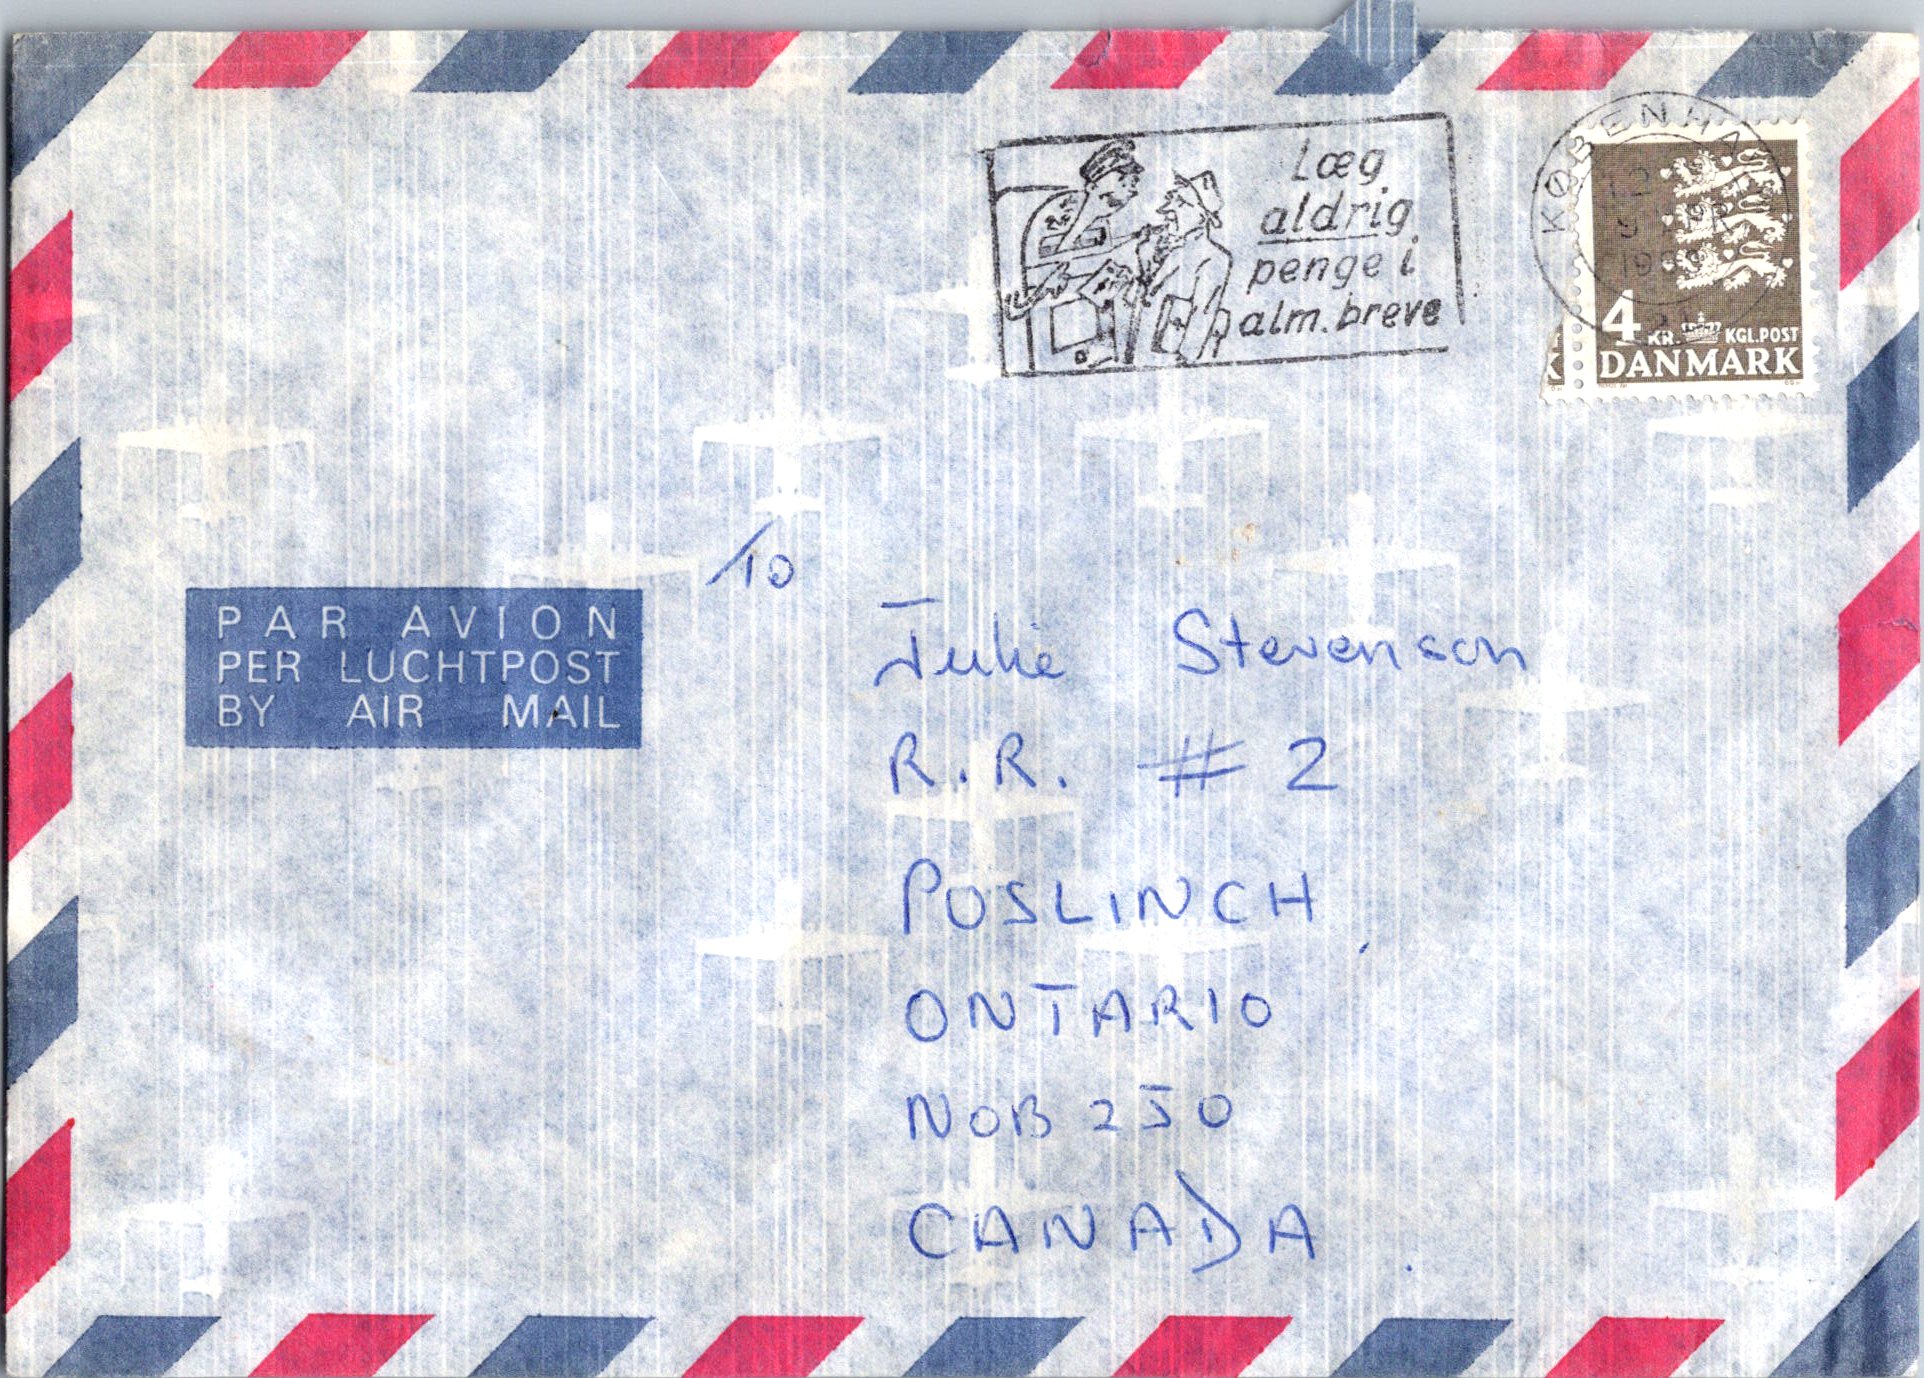 Læg
aldrig
penge i
alm. breve
KØBENHA
4 KR. KGL.POST
DANMARK
TO
PAR AVION
PER LUCHTPOST
BY AIR MAIL
Julie Stevenson
R.R. # 2
PUSLINCH,
ONTARIO
N0B 2J0
CANADA.